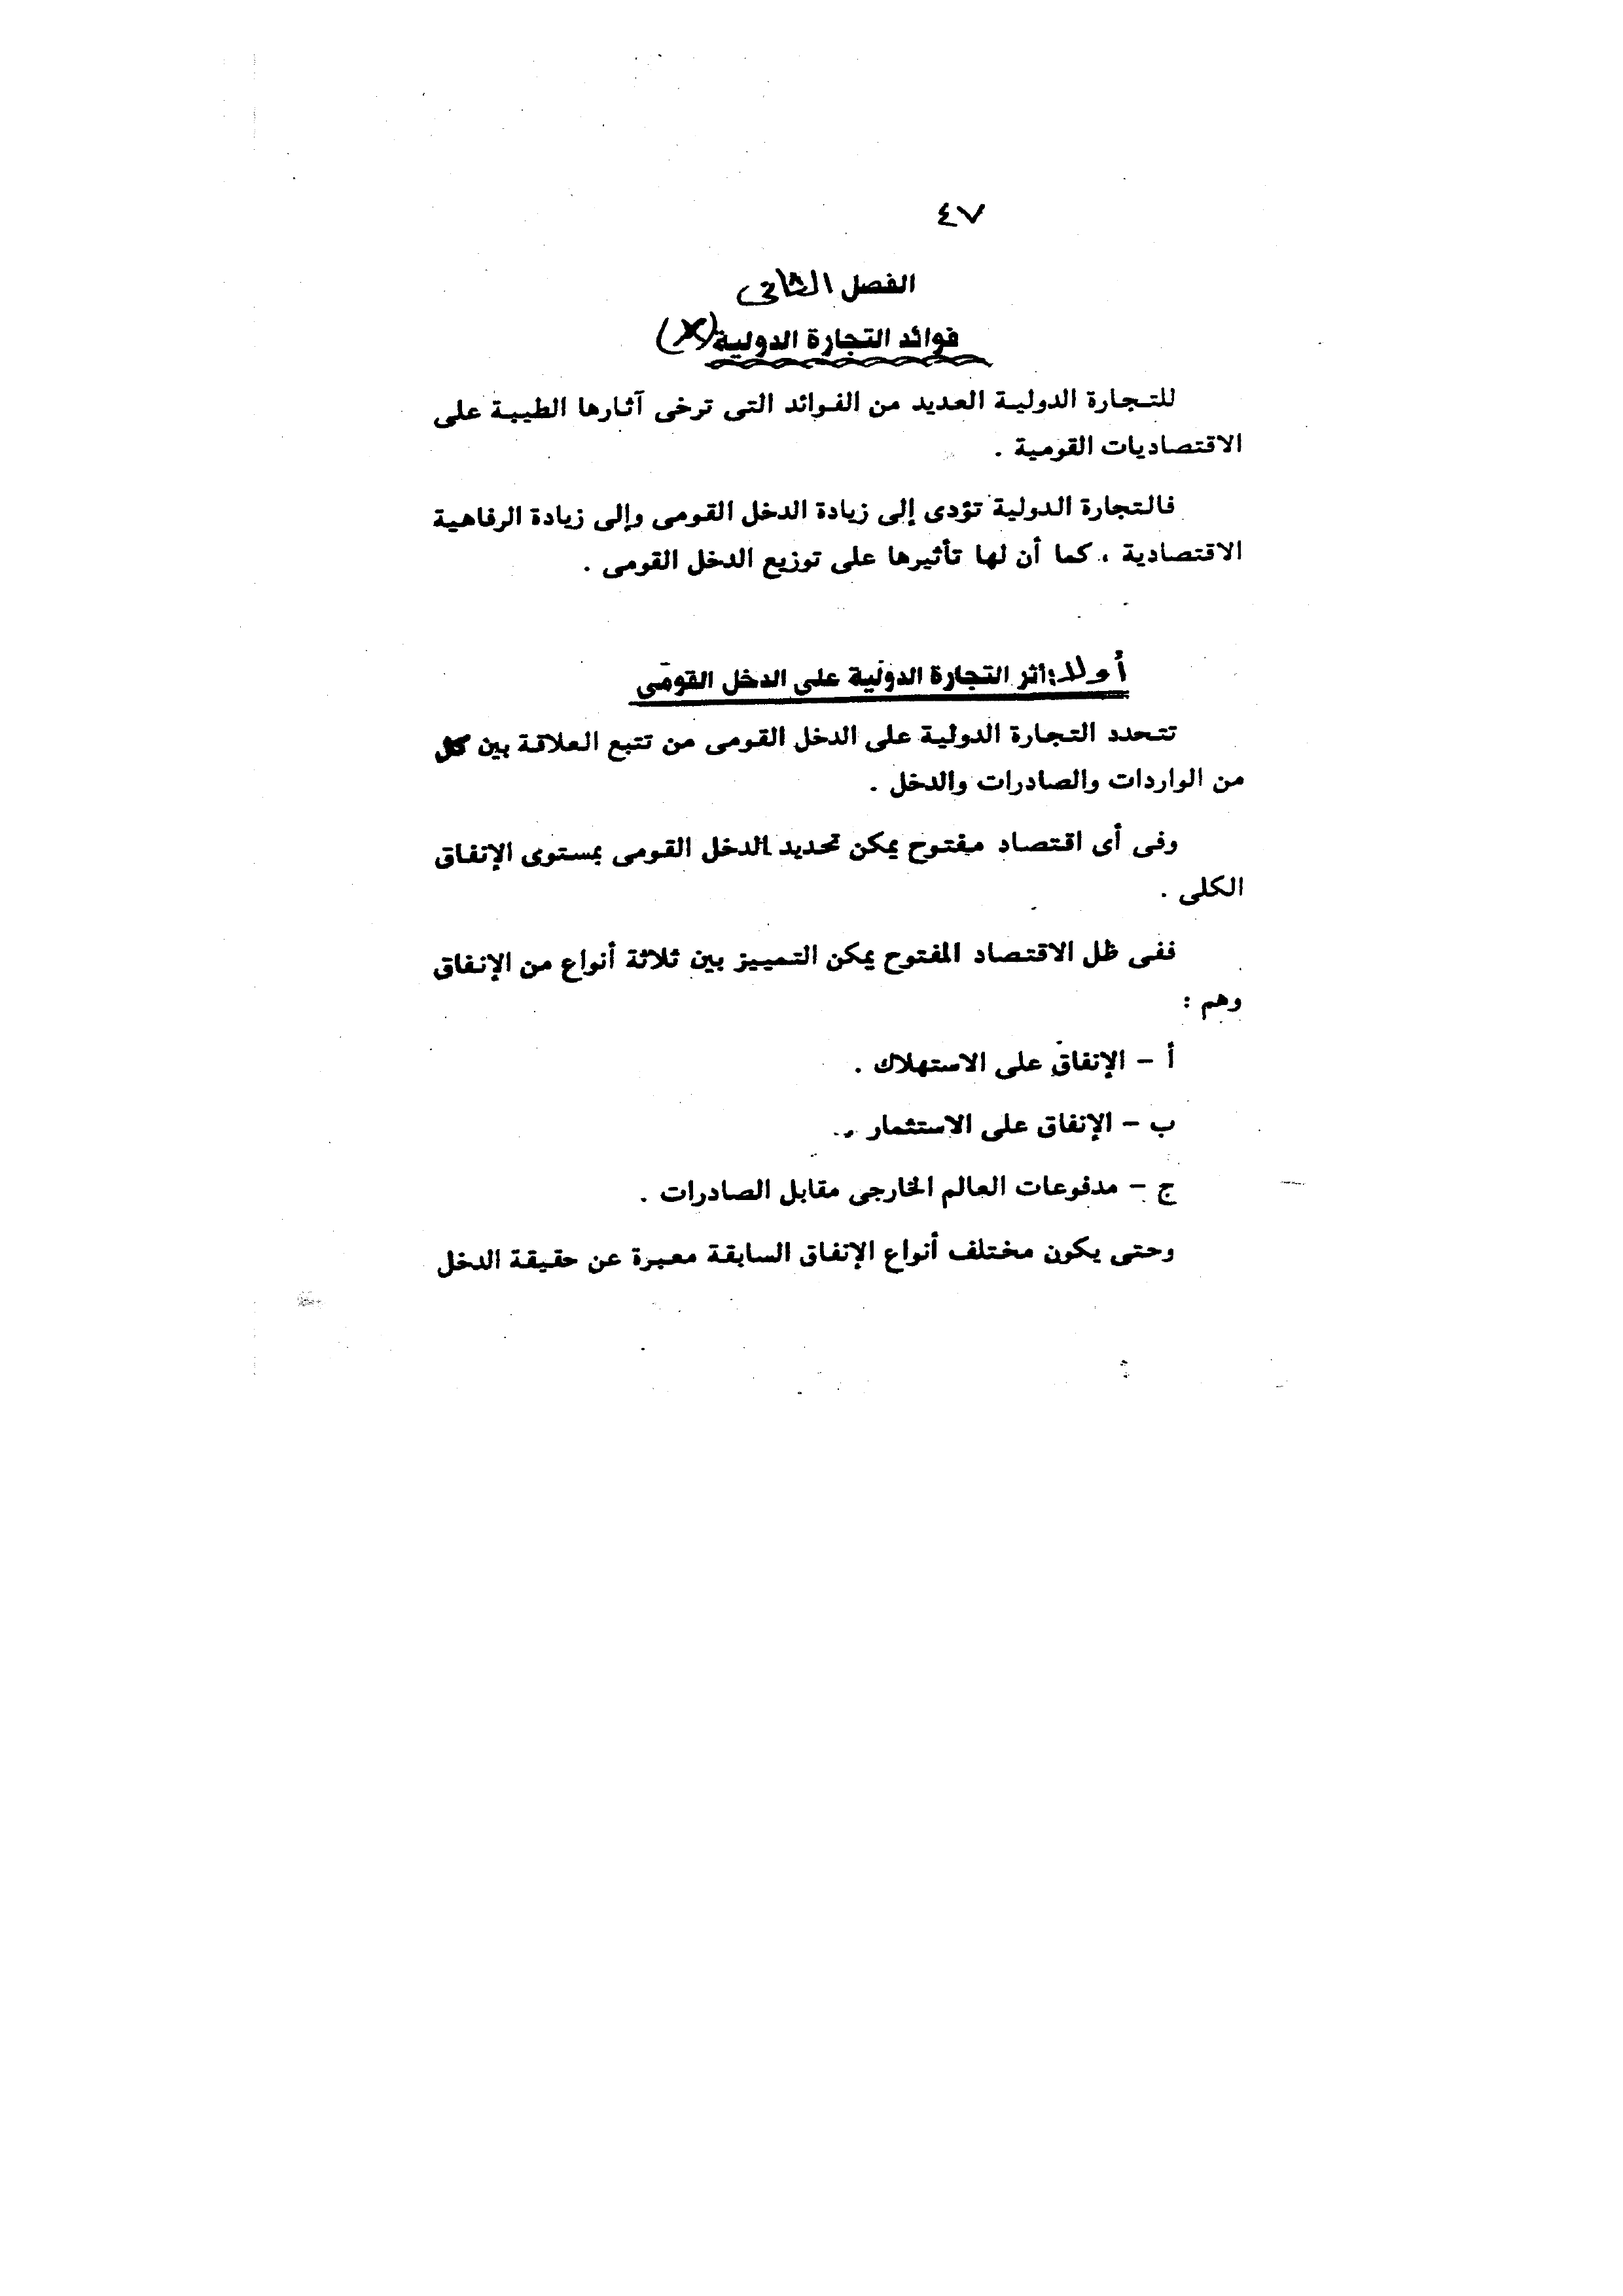 ٤٧
الفصل الثانى
فوائد التجارة الدولية (X)
للتجارة الدولية العديد من الفوائد التى ترخى آثارها الطيبة على
الاقتصاديات القومية .
فالتجارة الدولية تؤدى إلى زيادة الدخل القومى وإلى زيادة الرفاهية
الاقتصادية ، كما أن لها تأثيرها على توزيع الدخل القومى .
أولا : أثر التجارة الدولية على الدخل القومى
تتحدد التجارة الدولية على الدخل القومى من تتبع العلاقة بين كل
من الواردات والصادرات والدخل .
وفى أى اقتصاد مفتوح يمكن تحديد الدخل القومى بمستوى الإنفاق
الكلى .
ففى ظل الاقتصاد المفتوح يمكن التمييز بين ثلاثة أنواع من الإنفاق
وهم :
أ – الإنفاق على الاستهلاك .
ب – الإنفاق على الاستثمار .
ج – مدفوعات العالم الخارجى مقابل الصادرات .
وحتى يكون مختلف أنواع الإنفاق السابقة معبرة عن حقيقة الدخل